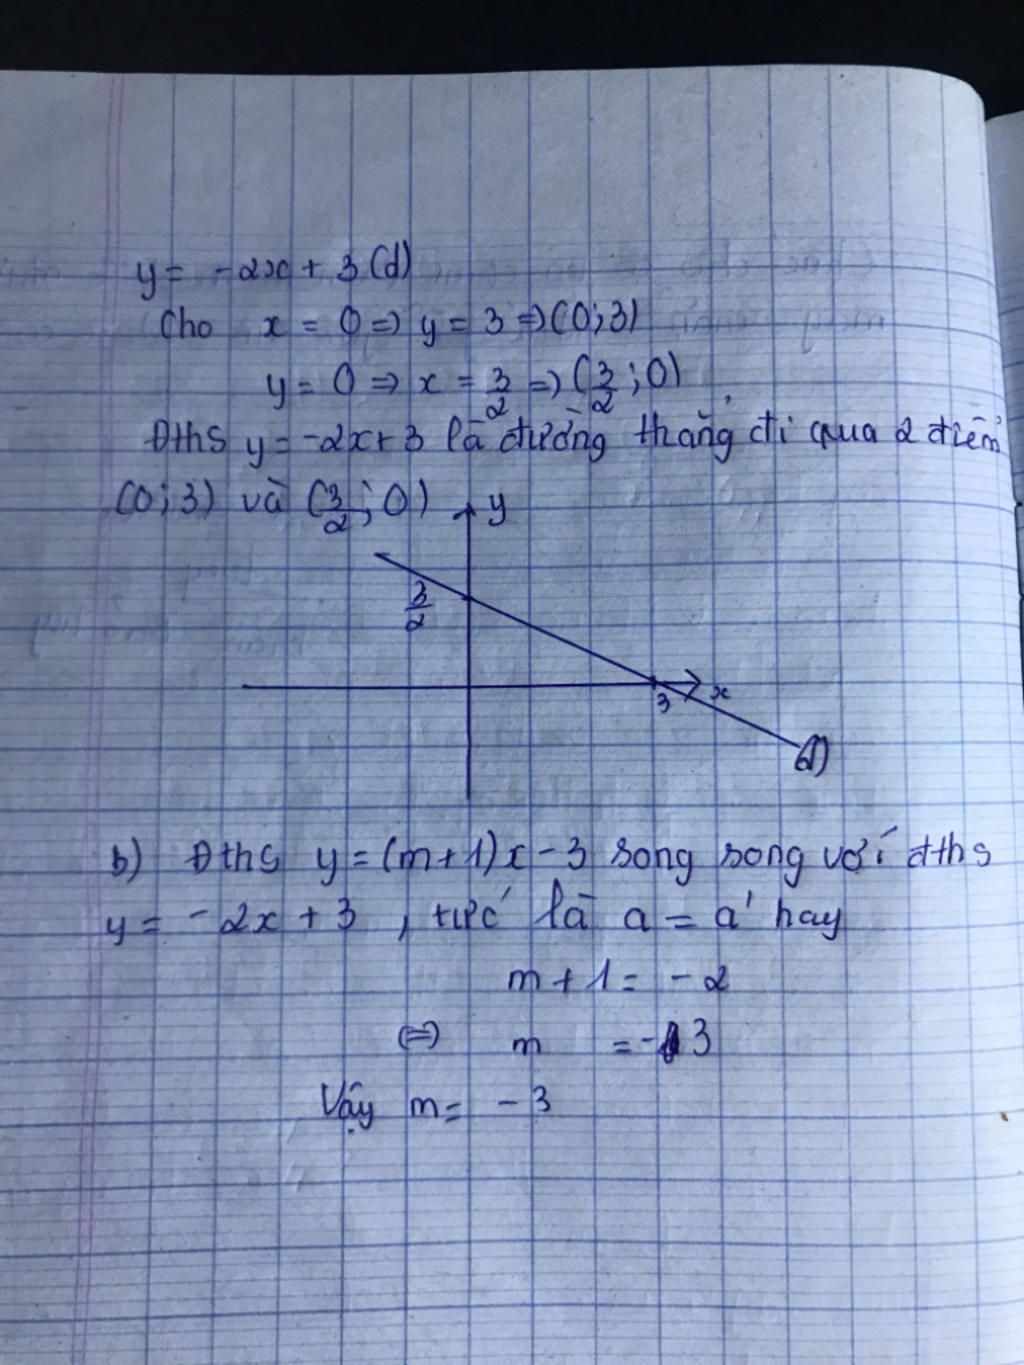 y = -2x + 3 (d)
Cho x = 0 => y = 3 => (0; 3)
y = 0 => x = 3/2 => (3/2; 0)
Đths y = -2x + 3 là đường thẳng đi qua 2 điểm
(0; 3) và (3/2; 0)
y
3/2
3
x
(d)
b) Đths y = (m+1)x - 3 song song với đths
y = -2x + 3, tức là a = a' hay
m + 1 = -2
<=> m = -3
Vậy m = -3